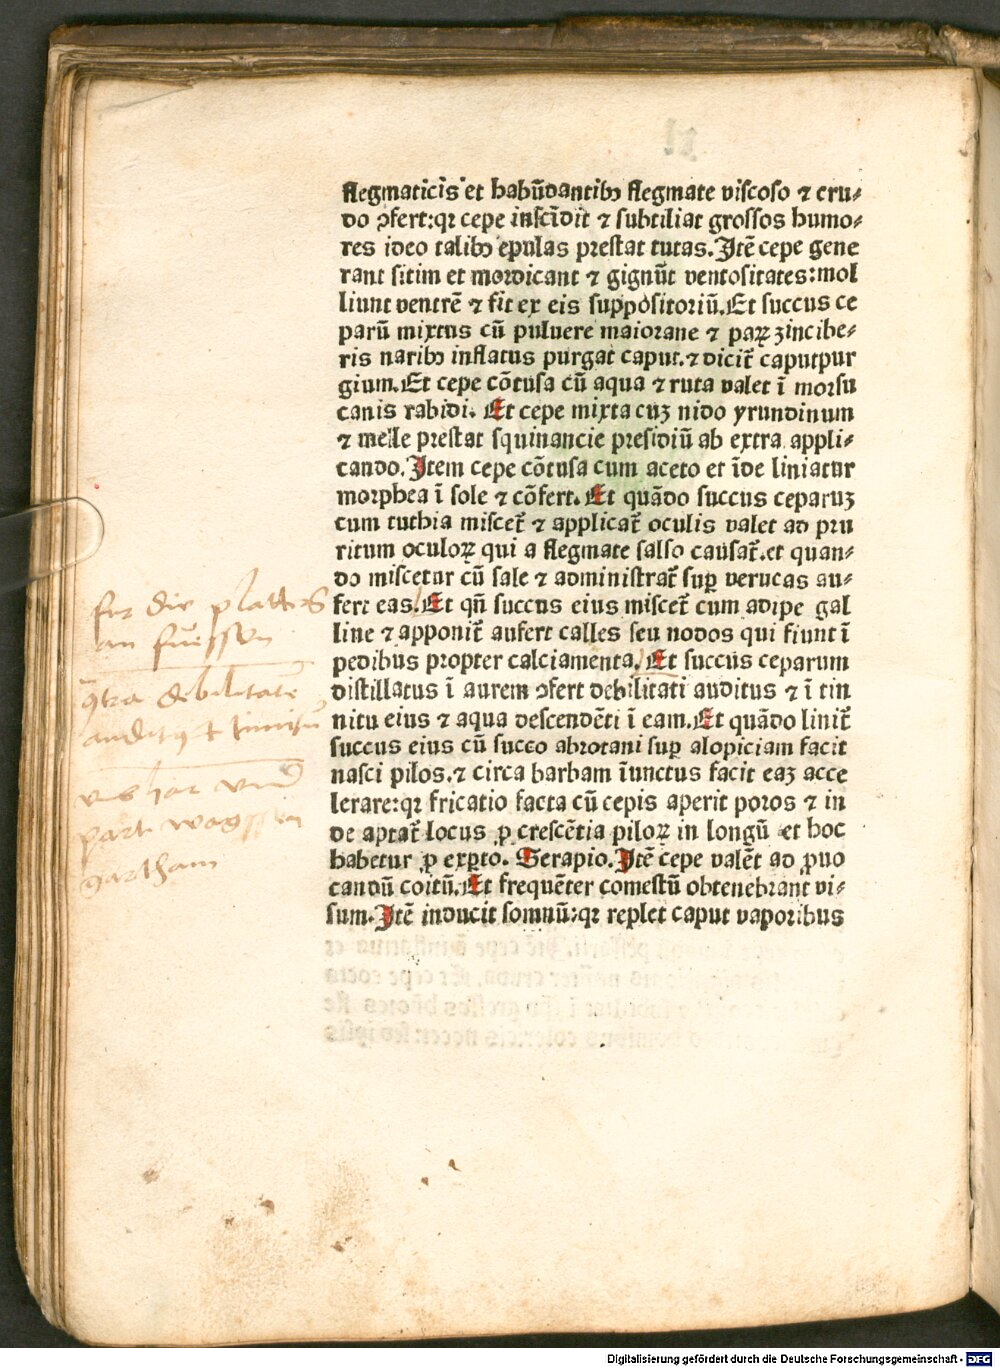 flegmaticis et habūdantibꝫ flegmate viscoso ⁊ cru-
do ꝯfert:qꝛ cepe inscīdit ⁊ subtiliat grossos humo-
res ideo talibꝫ epulas prestat tutas. Itē cepe gene
rant sitim et mordicant ⁊ gignūt ventositates:mol
liunt ventrē ⁊ fit ex eis suppositoriū. Et succus ce
parū mixtus cū puluere maiorane ⁊ paꝝ zincibe-
ris naribꝫ inflatus purgat caput.⁊ dicit̄ caputpur
gium. Et cepe cōtusa cū aqua ⁊ ruta valet ī morsu
canis rabidi. Et cepe mixta cuꝫ nido yrundinum
⁊ melle prestat squinancie presidiū ab extra appli-
cando. Item cepe cōtusa cum aceto et īde liniatur
morphea ī sole ⁊ cōfert. Et quādo succus ceparuꝫ
cum tuthia miscet̄ ⁊ applicat̄ oculis valet ad pru
ritum oculoꝝ qui a flegmate salso causat̄.et quan-
do miscetur cū sale ⁊ administrat̄ suꝑ verucas au-
fert eas. Et qn̄ succus eius miscet̄ cum adipe gal
line ⁊ apponit̄ aufert calles seu nodos qui fiunt ī
pedibus propter calciamenta. Et succus ceparum
distillatus ī aurem ꝯfert debilitati auditus ⁊ ī tin
nitu eius ⁊ aqua descendēti ī eam. Et quādo linit̄
succus eius cū succo abrotani suꝑ alopiciam facit
nasci pilos.⁊ circa barbam īunctus facit eaꝫ acce
lerare:qꝛ fricatio facta cū cepis aperit poros ⁊ in
de aptat̄ locus ꝓ crescētia piloꝝ in longū et hoc
habetur ꝓ exꝑto. Serapio. Itē cepe valēt ad ꝓuo
candū coitū. Et frequēter comestū obtenebrant vi-
sum. Itē inducit somnū:qꝛ replet caput vaporibus
for die plattes
an fuessen
ꝯtra debilitatē
auditꝰ ⁊ tinnitū
har
part wagssen